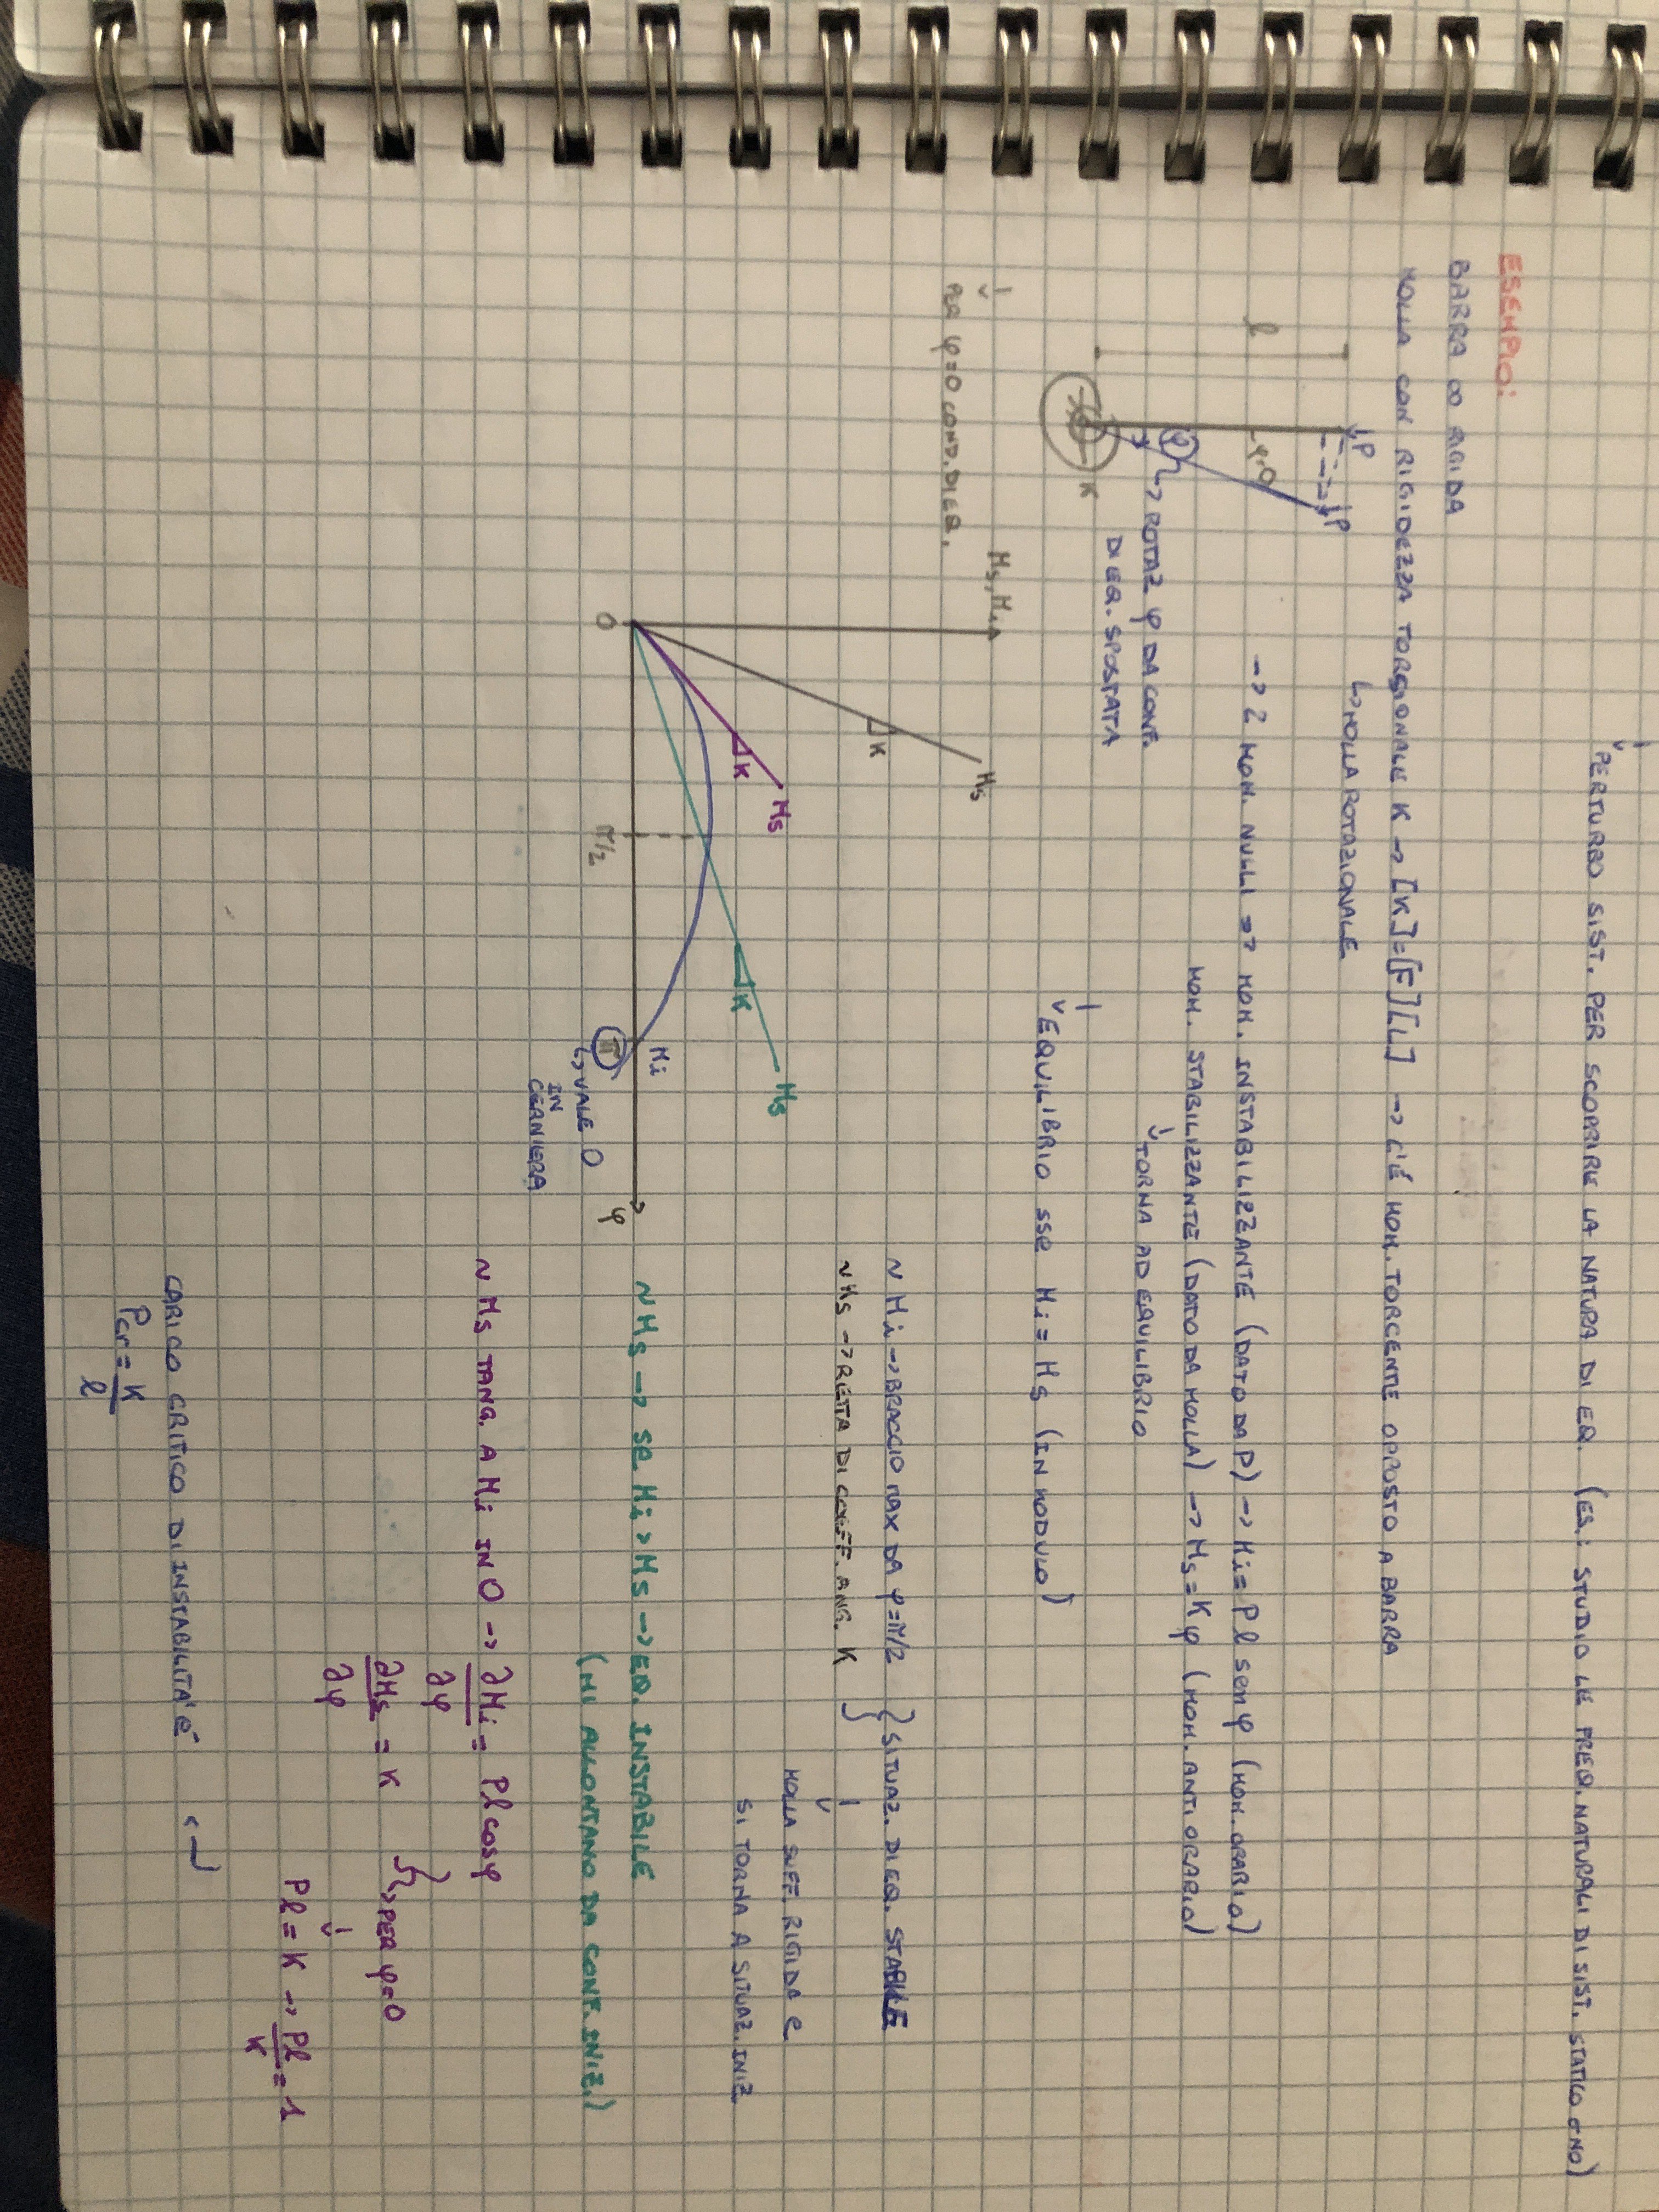 PERTURBO SIST. PER SCOPRIRE LA NATURA DI EQ. (ES.: STUDIO LE FREQ. NATURALI DI SIST. STATICO o NO)
ESEMPIO:
BARRA ∞ RIGIDA
MOLLA CON RIGIDEZZA TORSIONALE K -> [K]=[F][L] -> C'È MOM. TORCENTE OPPOSTO A BARRA
↳ MOLLA ROTAZIONALE
P
P
l
φ=0
φ
K
-> ROTAZ φ DA CONF.
DI EQ. SPOSTATA
-> 2 MOM. NULLI => MOM. INSTABILIZZANTE (DATO DA P) -> Mi = Pl senφ (MOM. ORARIO)
MOM. STABILIZZANTE (DATO DA MOLLA) -> Ms = Kφ (MOM. ANTIORARIO)
TORNA AD EQUILIBRIO
EQUILIBRIO SSE Mi = Ms (IN MODULO)
PER φ=0 COND. DI EQ.
Ms, Mi
Ms
K
Ms
K
Ms
K
Mi
0
π/2
π
φ
↳ VALE 0
IN
CERNIERA
~ Mi -> BRACCIO MAX DA φ=π/2
~ Ms -> RETTA DI COEFF. ANG. K
} SITUAZ. DI EQ. STABILE
MOLLA SUFF. RIGIDA e
SI TORNA A SITUAZ. INIZ.
~ Ms -> se Mi > Ms -> EQ. INSTABILE
(MI ALLONTANO DA CONF. INIZ.)
~ Ms TANG. A Mi IN 0 -> ∂Mi/∂φ = Pl cosφ
∂Ms/∂φ = K
} -> PER φ=0
Pl = K -> Pl/K = 1
CARICO CRITICO DI INSTABILITA' è
Pcr = K/l